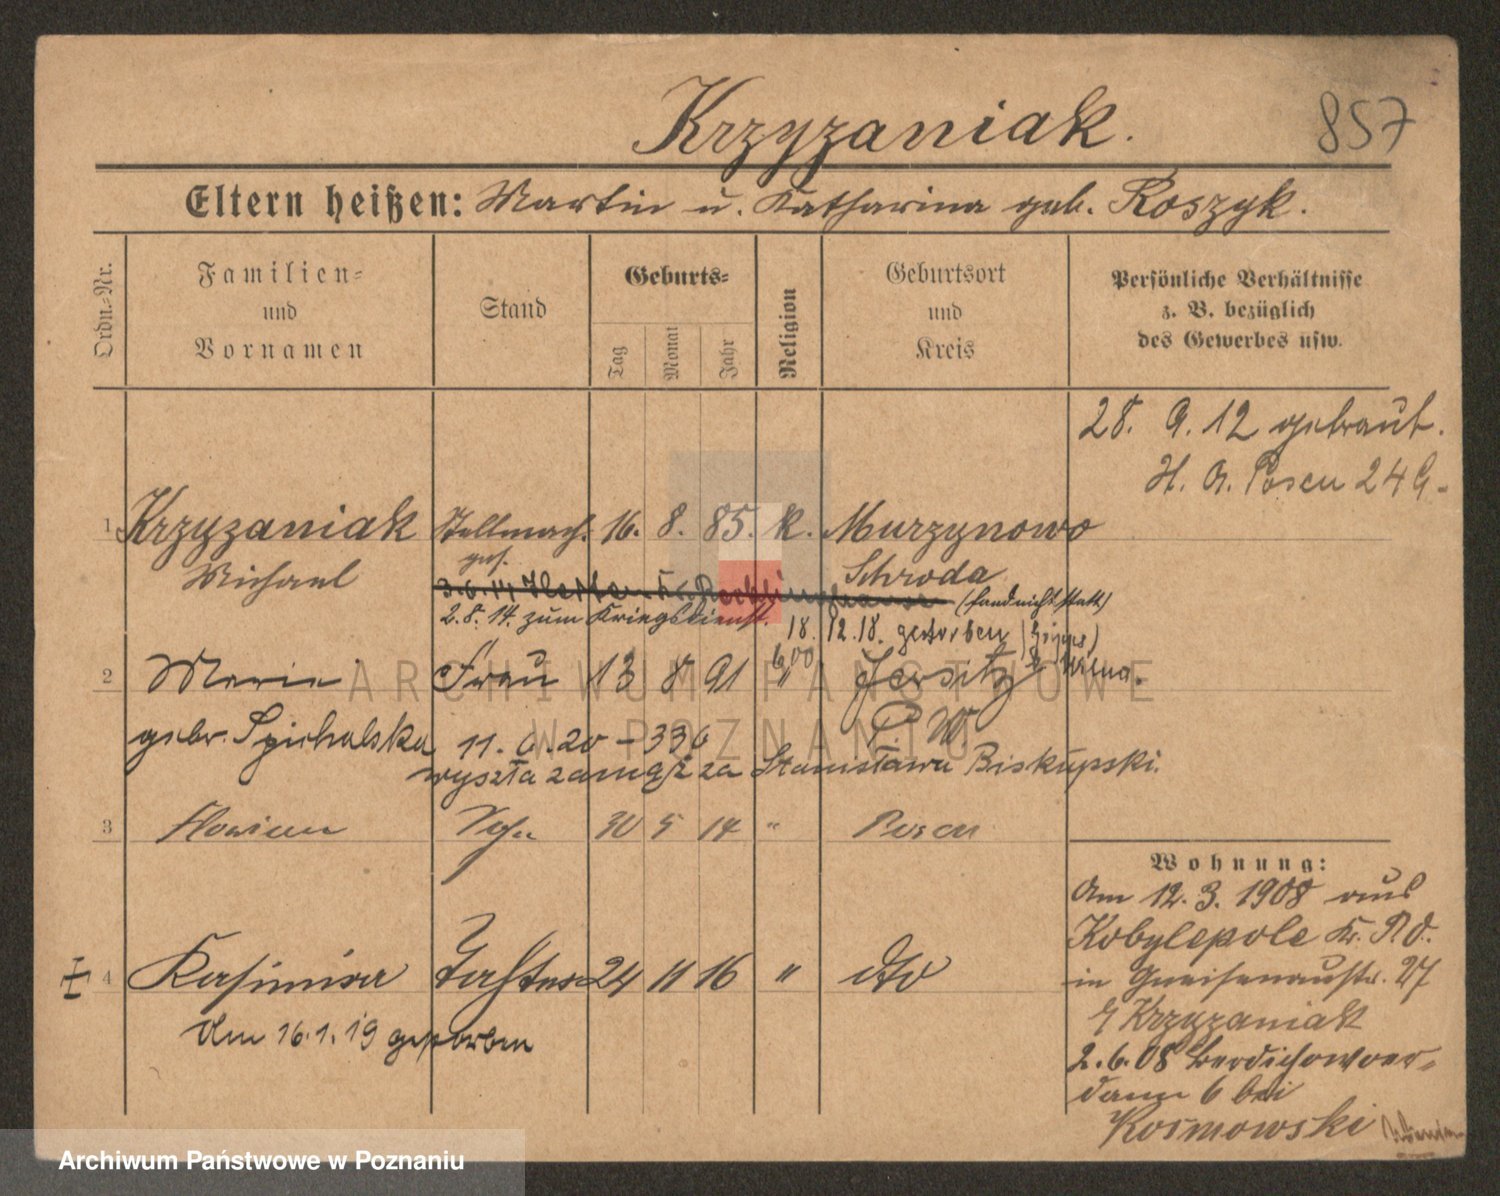 Krzyzaniak.
857
Eltern heißen: Martin u. Katharina geb. Roszyk.
Ordn.-Nr.
Familien-
und
Vornamen
Stand
Geburts-
Tag
Monat
Jahr
Religion
Geburtsort
und
Kreis
Persönliche Verhältnisse
z. B. bezüglich
des Gewerbes usw.
28. 9. 12 getraut.
Posen
1 Krzyzaniak Stellmach. 16. 8. 85. k. Murzynowo
Michael
Schroda
3.6.14
(fand nicht statt)
2.8.14. zum Kriegsdienst.
18. 12. 18. gestorben
2 Maria Frau 13 8 91 " Jersitz
gebr. Spichalska
P. W
11. 6. 20 - 336
wyszła zamąż za Stanisława Biskupski.
3 Florian 30 5 14 " Posen
4 Kasimira Tochter 24 11 16 " dto
Am 16.1.19 gestorben
Wohnung:
Am 12. 3. 1908 aus
Kobylepole Kr.
in Gneisenaustr. 27
Krzyzaniak
2.6.08
damm 6 bei
Kosmowski
ARCHIWUM PAŃSTWOWE
W POZNANIU
Archiwum Państwowe w Poznaniu